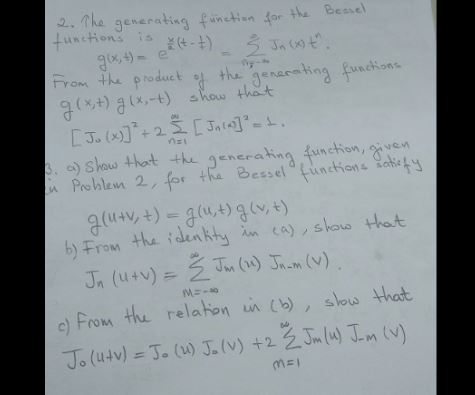 2. The generating function for the Bessel
functions is
g(x,t) = e^{x/2 (t - 1/t)} = ∑_{n=-∞}^{∞} Jn(x) t^n.
From the product of the generating functions
g(x,t) g(x,-t) show that
[J₀(x)]² + 2 ∑_{n=1}^{∞} [Jn(x)]² = 1.
3. a) Show that the generating function, given
in Problem 2, for the Bessel functions satisfy
g(u+v, t) = g(u,t) g(v,t)
b) From the identity in (a), show that
Jn (u+v) = ∑_{m=-∞}^{∞} Jm(u) Jn-m(v).
c) From the relation in (b), show that
J₀(u+v) = J₀(u) J₀(v) + 2 ∑_{m=1}^{∞} Jm(u) J-m(v)